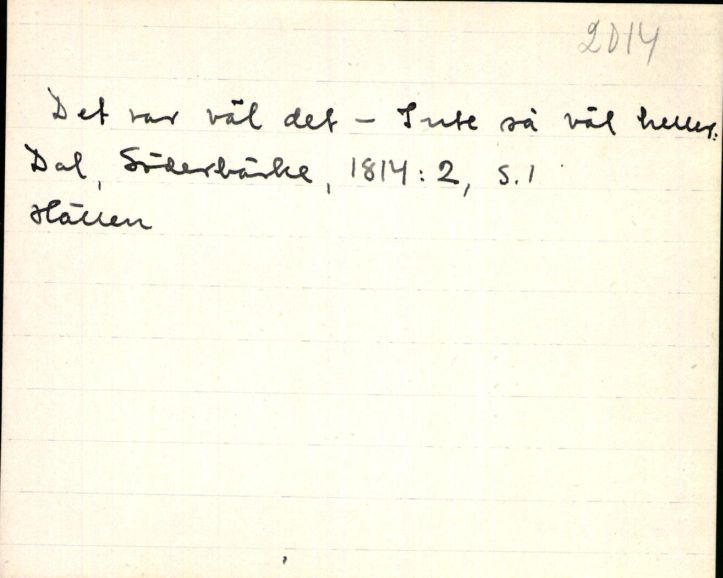 2014
Det var väl det – Inte så väl heller.
Dal, Söderbärke, 1814:2, S.1
Hällen